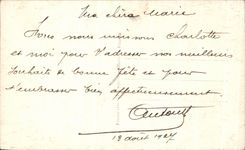 Ma chère Marie
Nous nous unissons Charlotte
et moi pour t'adresser nos meilleurs
souhaits de bonne fête et pour
t'embrasser bien affectueusement.
13 août 1927